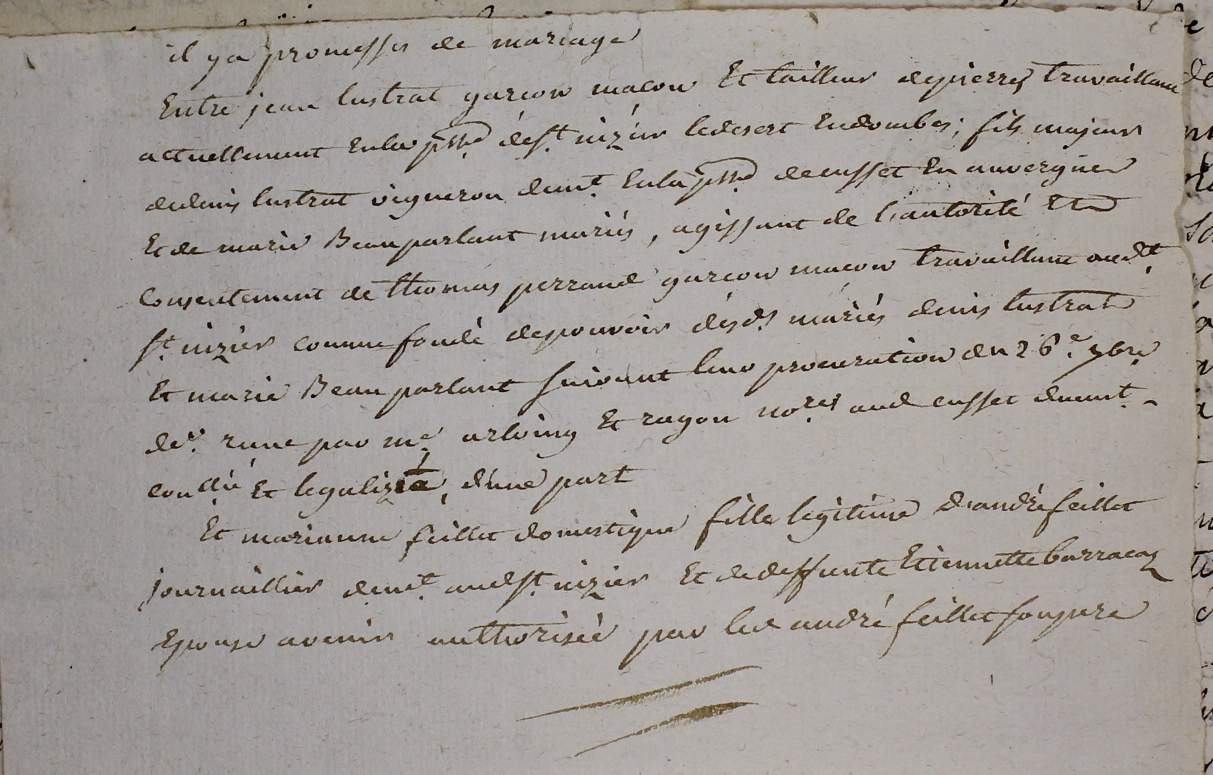 il ya promesses de mariage
Entre jean lustrat garcon macon Et tailleur depierres travaillant
actuellement Enla psse dest nizier ledesert Endombes; fils majeur
dedenis lustrat vigneron demt Enla psse decusset En auvergne
Et de marie Beauparlant mariés, agissant de l'autorité Et
Consentement de thomas perraud garcon macon travaillant audt
st nizier comme fondé despouvoir désds mariés denis lustrat
Et marie Beauparlant suivant leur procuration du 26e 7bre
der recue par me arloing Et ragon nores aud cusset duemt
conllée Et legalizée, d'une part
Et marianne feillet domestique fille legitime d'andré feillet
journaillier demt audst nizier Et dedeffunte Etiennette
Epouse avenir authorisée par led andré feillet sonpere